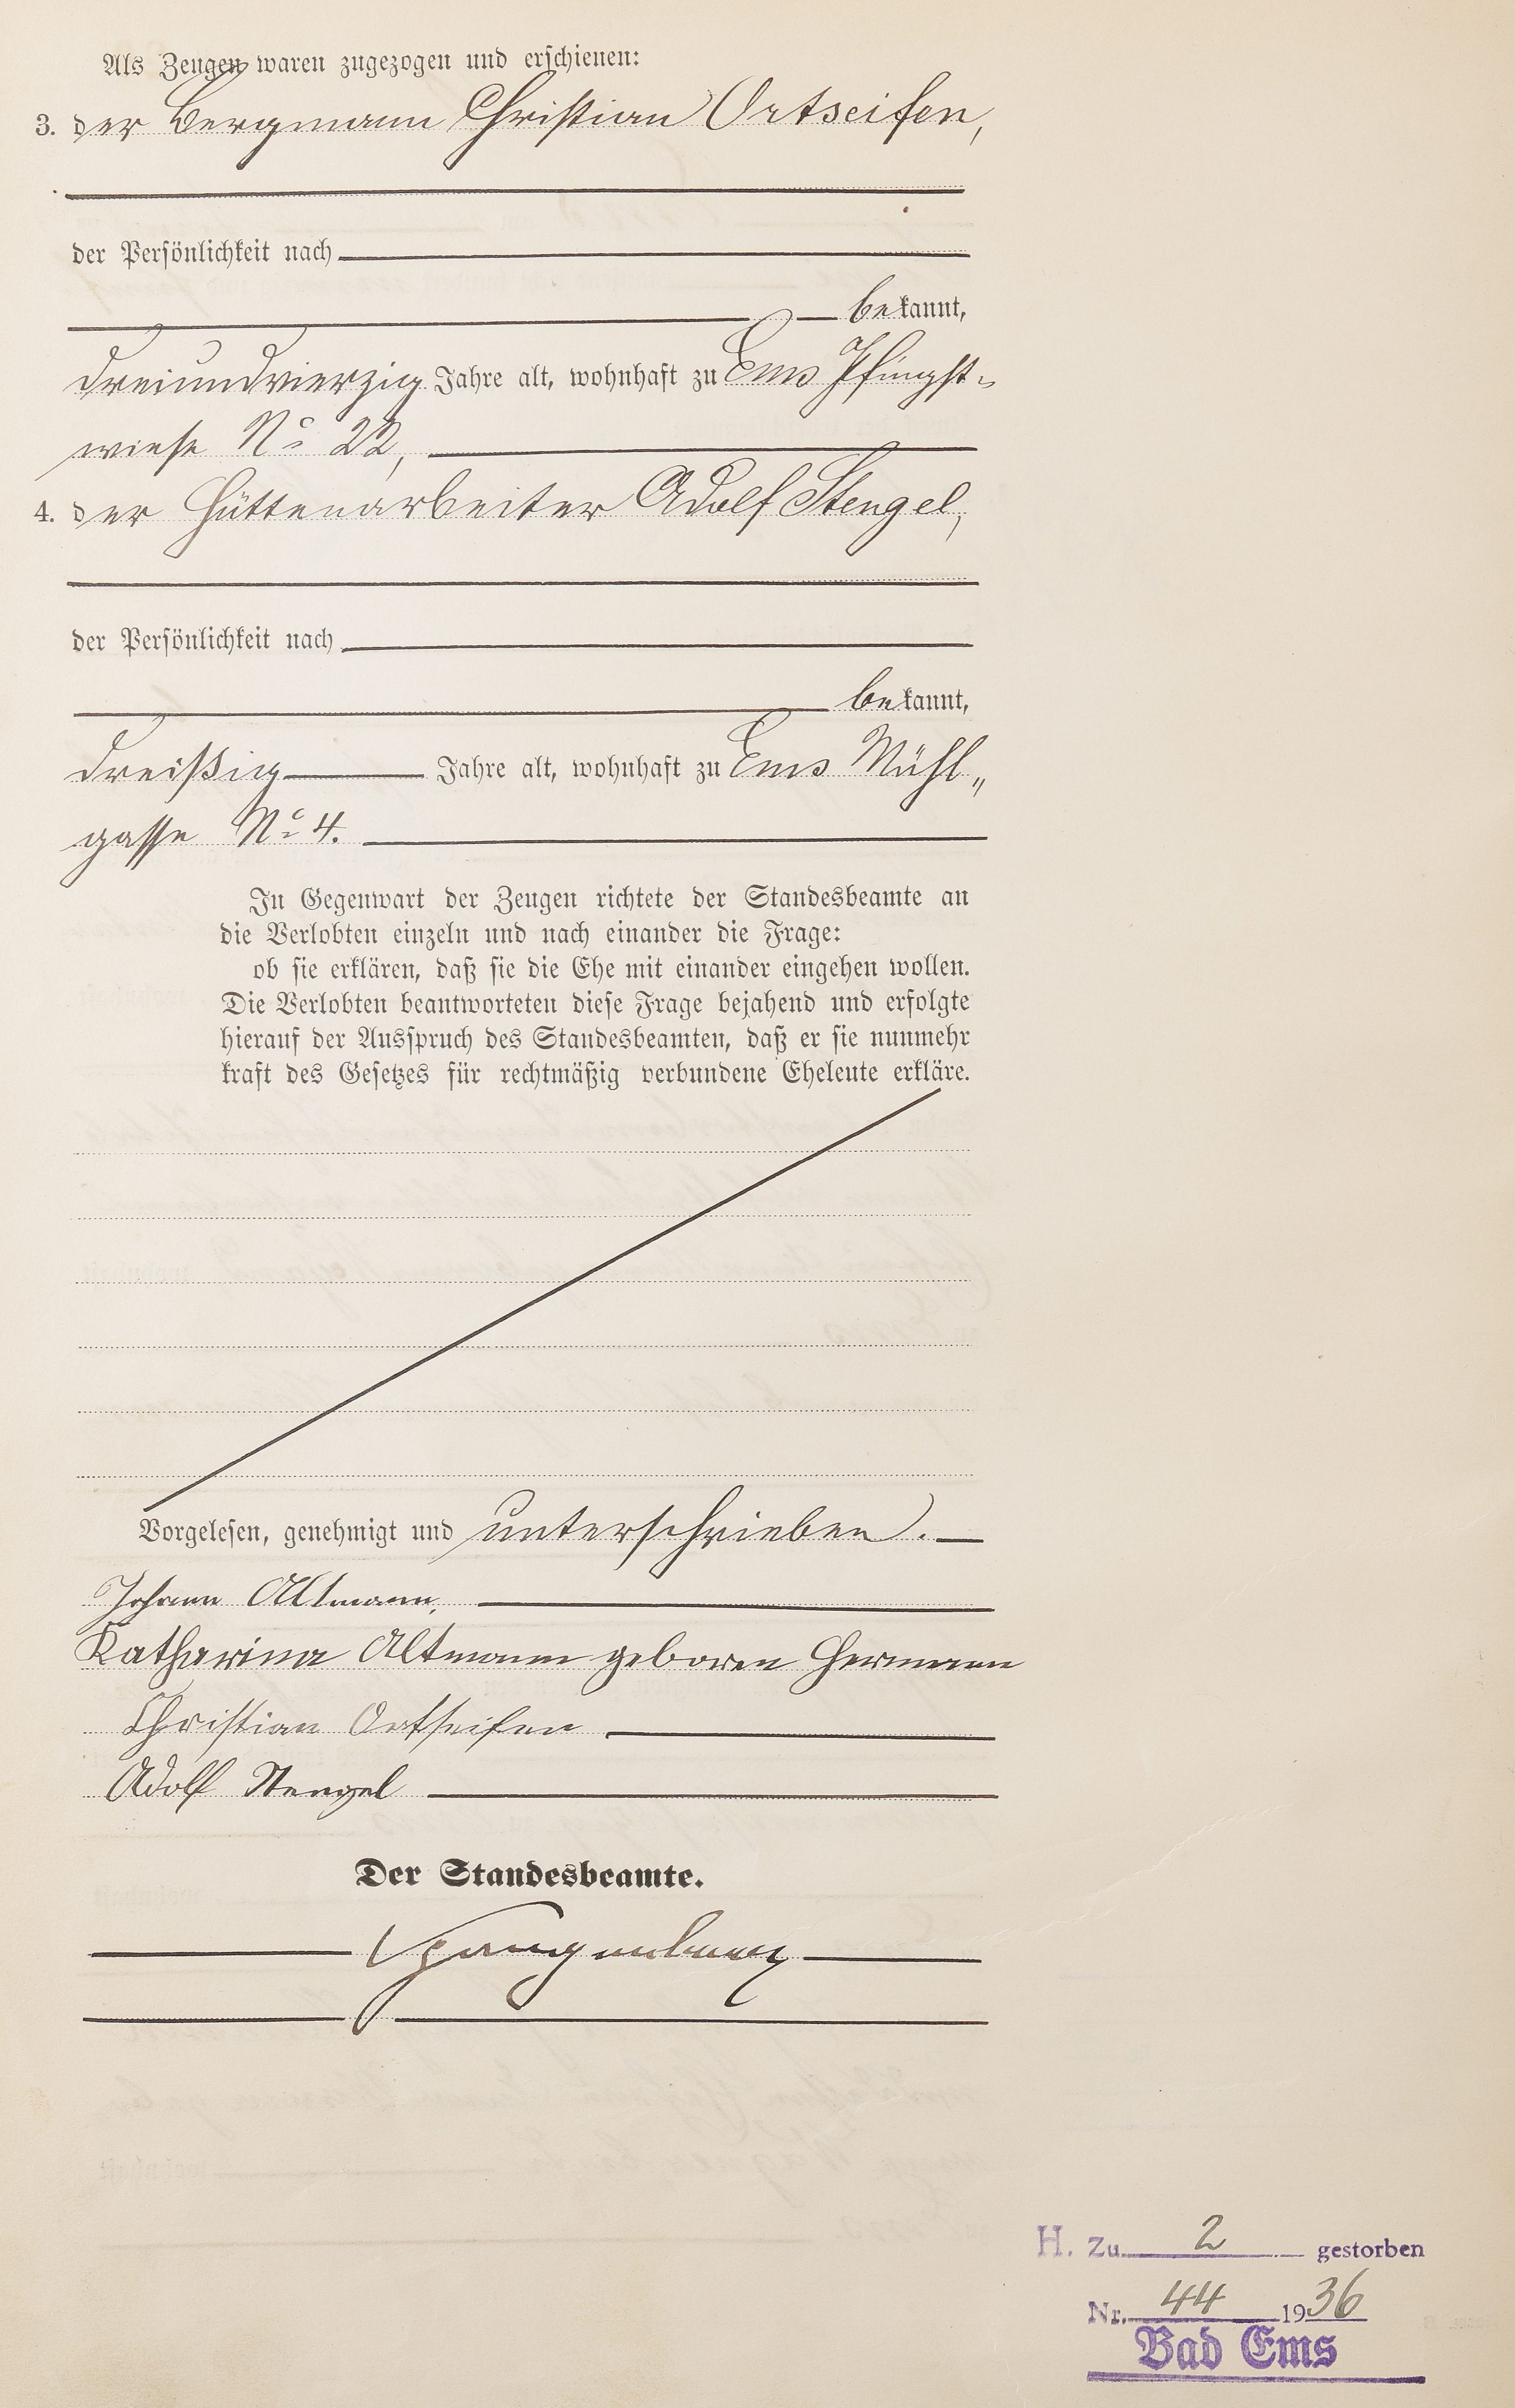 Als Zeugen waren zugezogen und erschienen:
3. der Bergmann Christian Ortseifen,
der Persönlichkeit nach
bekannt,
dreiundvierzig Jahre alt, wohnhaft zu Ems Pfingst-
wiese No 22,
4. der Hüttenarbeiter Adolf Stengel,
der Persönlichkeit nach
bekannt,
dreißig Jahre alt, wohnhaft zu Ems Mühl„
gasse No 4.
In Gegenwart der Zeugen richtete der Standesbeamte an
die Verlobten einzeln und nach einander die Frage:
ob sie erklären, daß sie die Ehe mit einander eingehen wollen.
Die Verlobten beantworteten diese Frage bejahend und erfolgte
hierauf der Ausspruch des Standesbeamten, daß er sie nunmehr
kraft des Gesetzes für rechtmäßig verbundene Eheleute erkläre.
Vorgelesen, genehmigt und unterschrieben.
Johann Altmann.
Katharina Altmann geboren Hermann
Christian Ortseifen
Adolf Stengel
Der Standesbeamte.
Spangenberg
H. Zu 2 gestorben
Nr. 44 1936
Bad Ems